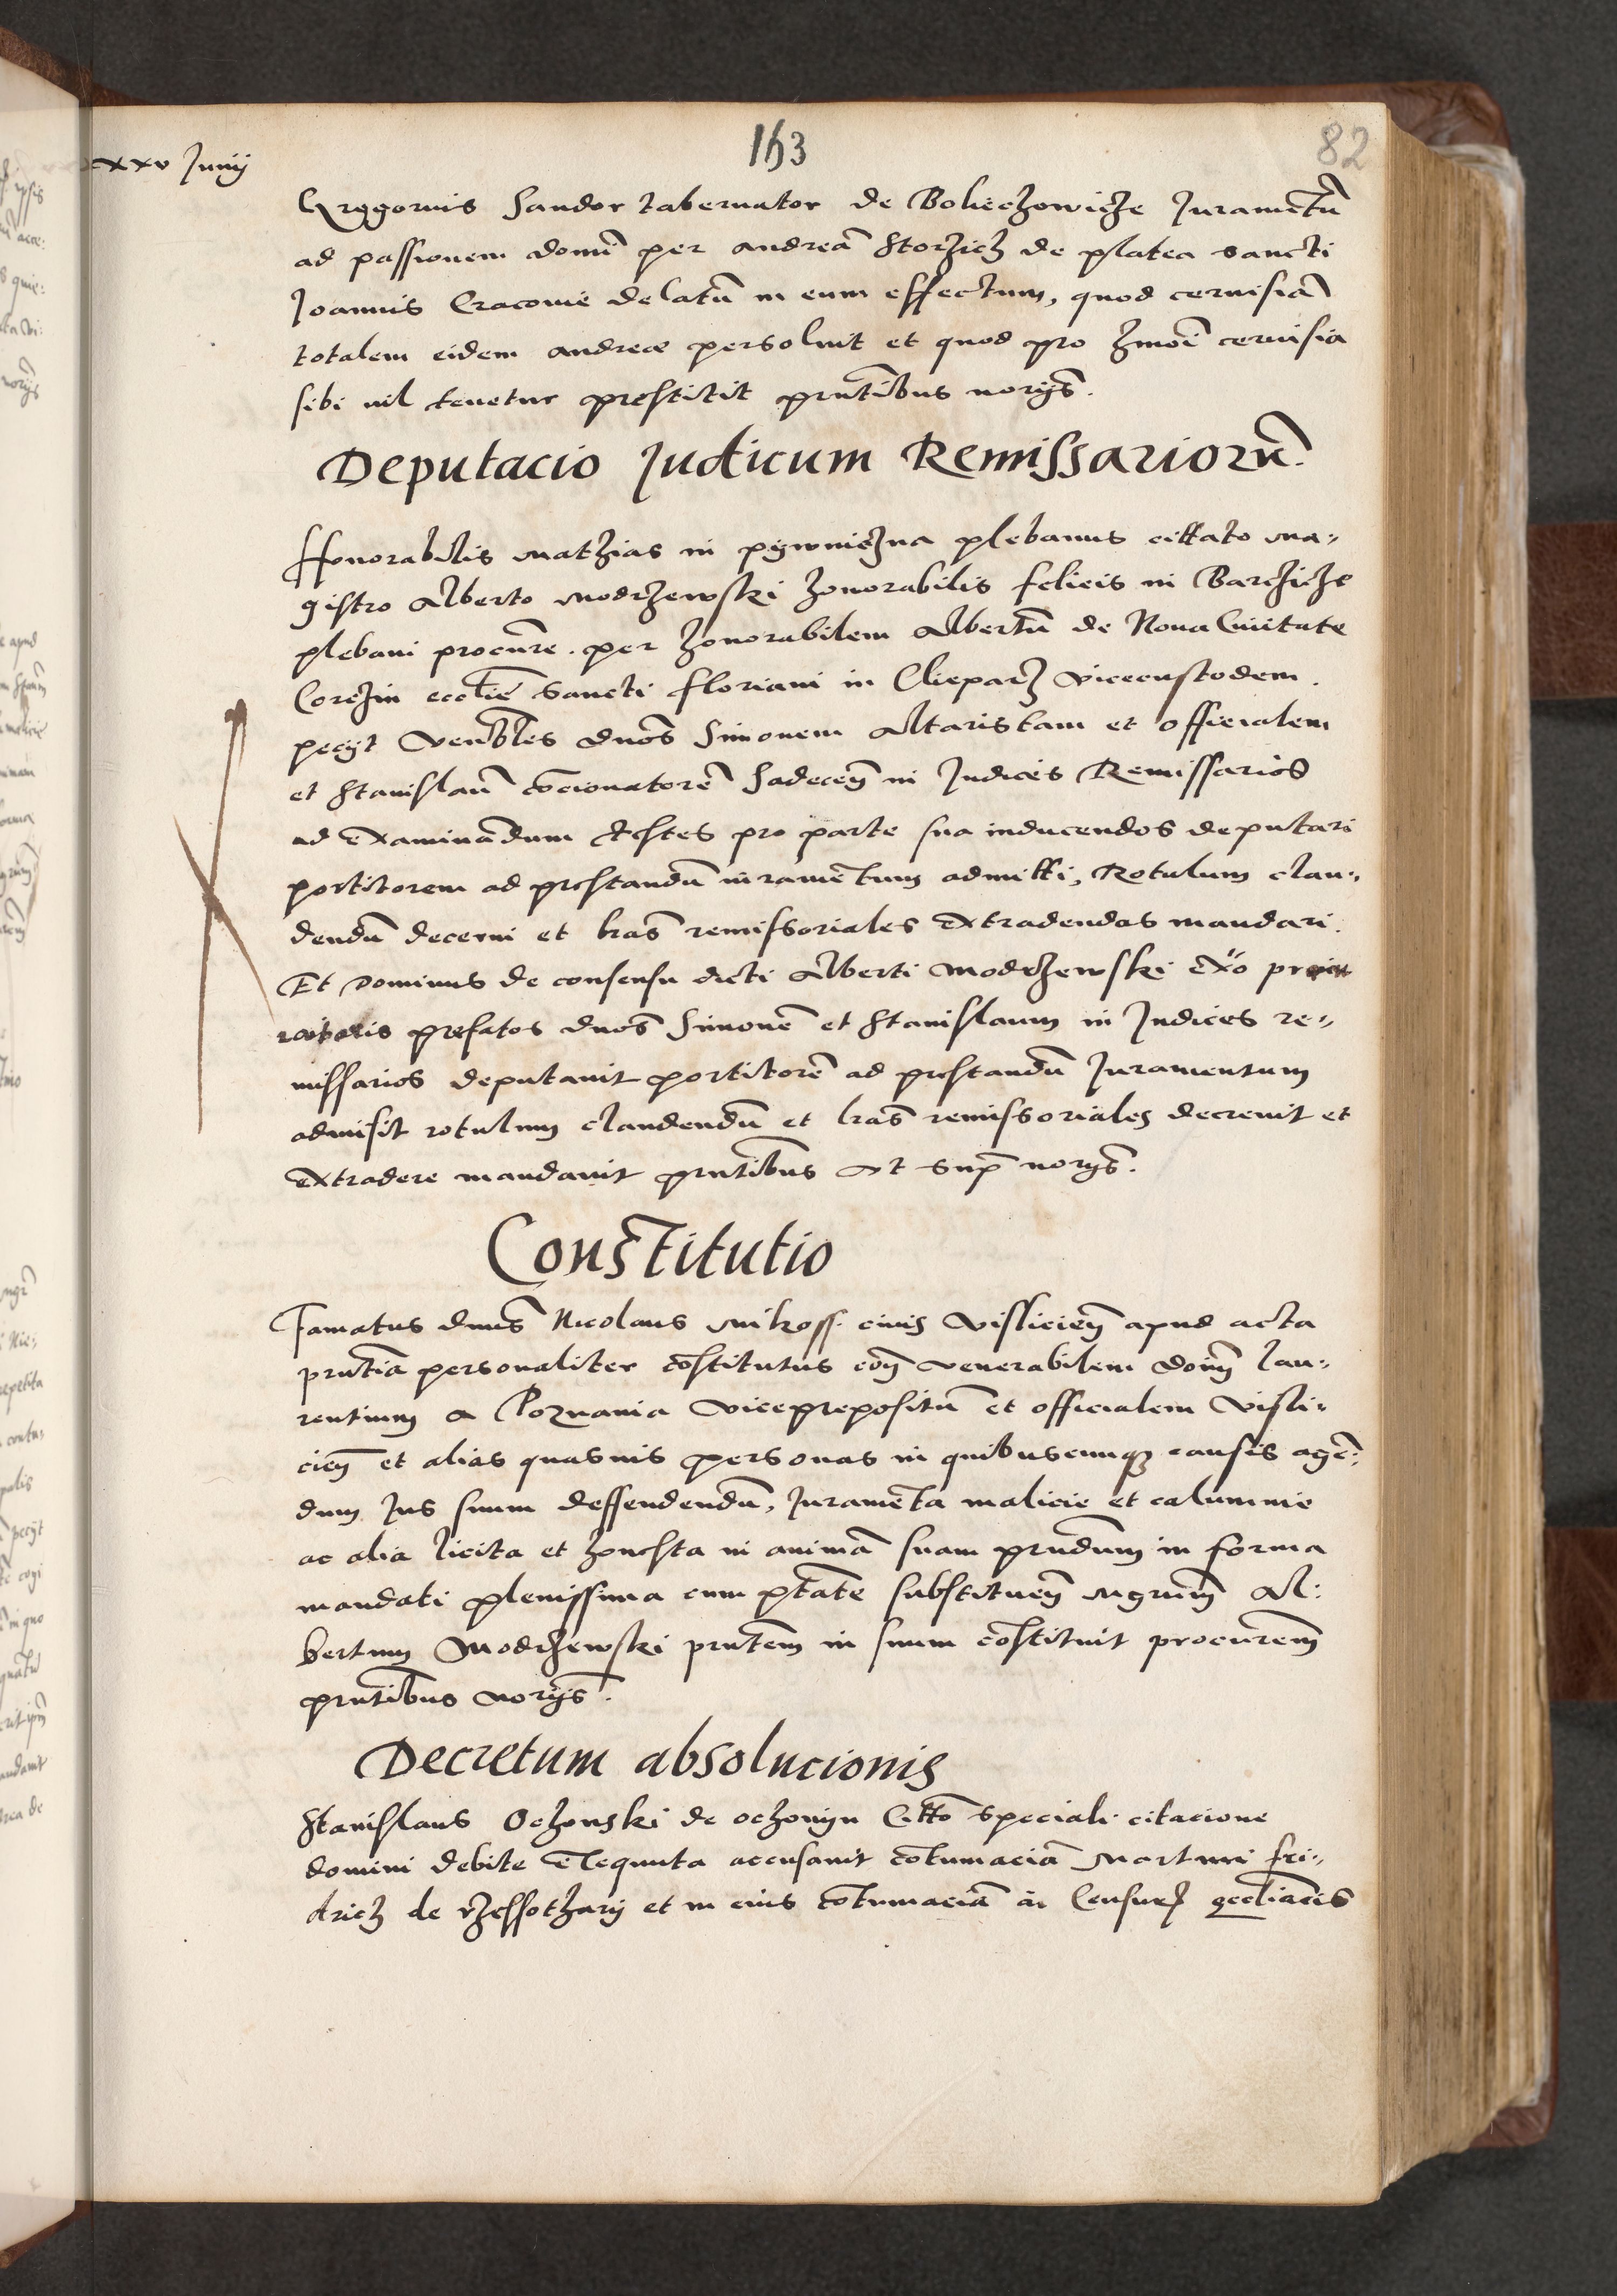 163
82
xxv Junij
Gregorius Sandor tabernator de Boliechowicze Juramētū
ad passionem domī per andreā Storzich de platea sancti
Joannis Cracovie delatū in eum effectum, quod cervisiā
totalem eidem andree persolvit et quod pro hmōi cervisia
sibi nil tenetur prestitit pñtibus norijs.
Deputacio Judicum Remissariorū.
Honorabilis Mathias in pywniczna plebanus cittato ma-
gistro Alberto Modrzewski honorabilis felicis in Barczicze
plebani procure. per honorabilem Albertū de Nova Civitate
Corczin ecclīe Sancti floriani in Clieparz vicecustodem.
pecijt Venbles dnos Simonem Altaristam et officialem
et Stanislaū cōcionatorē Sadeceñ in Judices Remissarios
ad examinandum testes pro parte sua inducendos deputari
portitorem ad prestandū iuramētum admitti, Rotulum clau-
dendū decerni et lras remissoriales extradendas mandari.
Et Dominus de consensu dicti Alberti Modrzewski exo
prefatos dnos Simonē et Stanislaum in Judices re-
missarios deputavit portitorē ad prestandū Juramentum
admisit rotulum claudendū et lras remissoriales decrevit et
extradere mandavit pñtibus ut sup norijs.
Constitutio
Famatus dnus Nicolaus Mikoss. civis Visliciēn apud acta
pñtia personaliter cōstitutus oēm venerabilem domm Lau-
rentium a Poznania viceprepositū et officialem Visli-
ciēn et alias quasvis personas in quibuscunq causis agē-
dum Jus suum deffendendū, Juramēta malicie et calumnie
ac alia licita et honesta in animā suam prndum in forma
mandati plenissima cum ptāte substitueñ Mgrum Al-
bertum Modrzewski pñtem in suum cōstituit procurem
pñtibus norijs.
Decretum absolucionis
Stanislaus Ochonski de ochonyn Citto speciali citacione
domini debite exequuta accusavit cōtumaciā Martini fri-
drich de rzessothary et in eius cōtumaciā a Censuris eccliācis